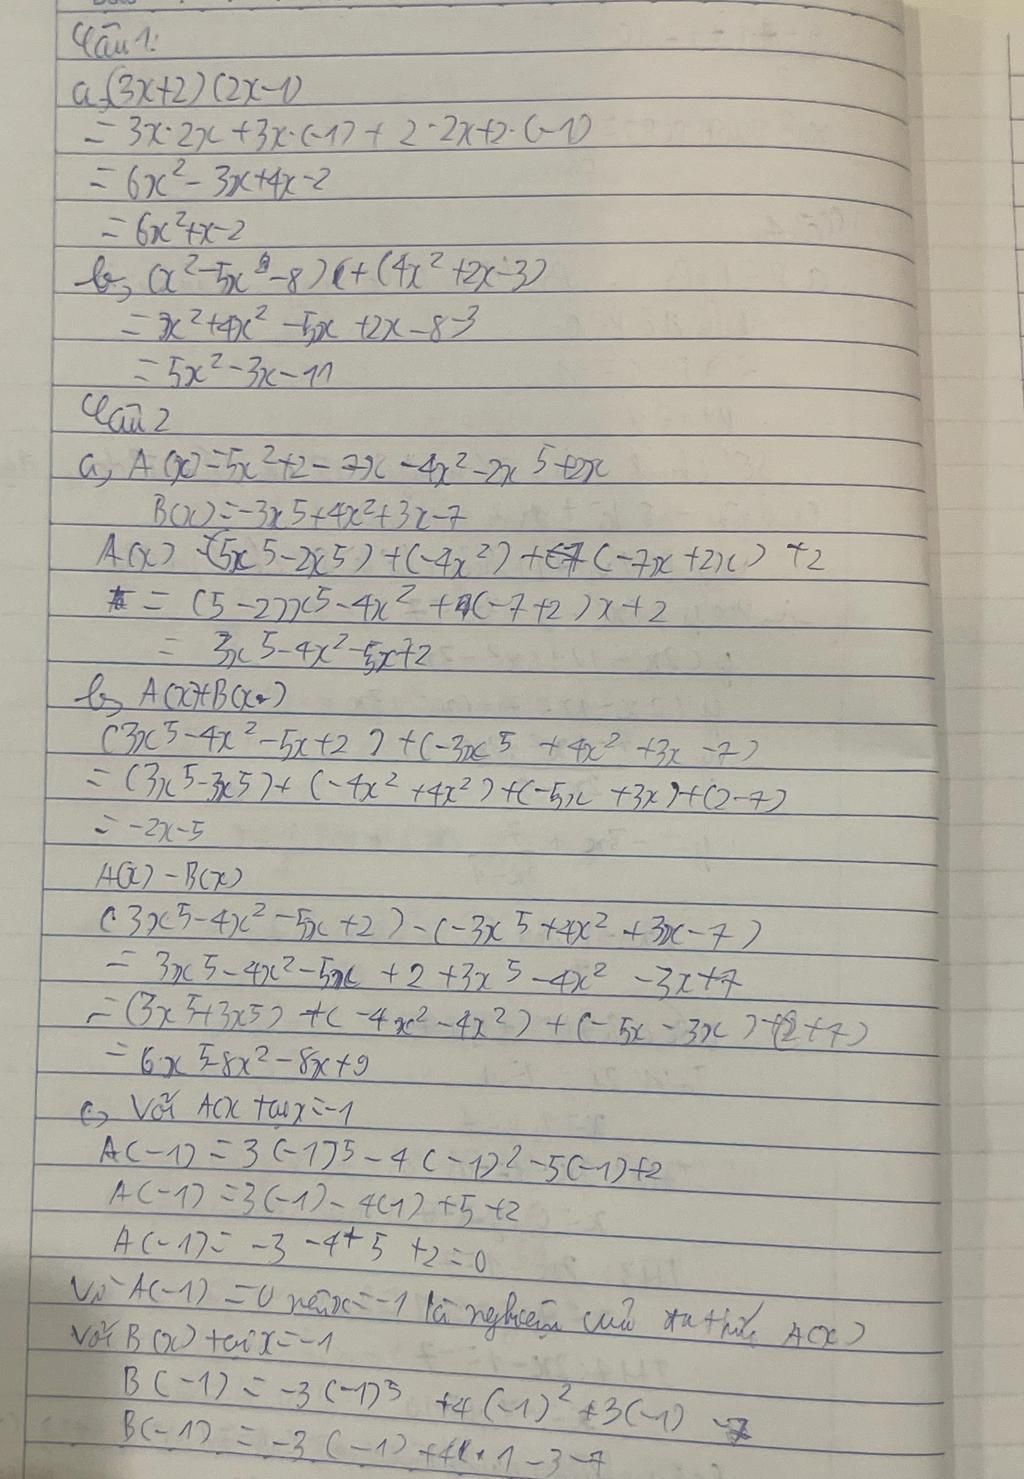 Câu 1:
a, (3x+2)(2x-1)
= 3x·2x+3x·(-1)+2·2x+2·(-1)
= 6x²-3x+4x-2
= 6x²+x-2
b, (x²-5x-8)+(4x²+2x-3)
= x²+4x²-5x+2x-8-3
= 5x²-3x-11
Câu 2
a, A(x)=5x²+2-7x-4x²-2x5+2x
B(x)=-3x5+4x²+3x-7
A(x) =(5x5-2x5)+(-4x²)+(-7x+2x)+2
= (5-2)x5-4x²+(-7+2)x+2
= 3x5-4x²-5x+2
b, A(x)+B(x)
(3x5-4x²-5x+2)+(-3x5+4x²+3x-7)
= (3x5-3x5)+(-4x²+4x²)+(-5x+3x)+(2-7)
= -2x-5
A(x)-B(x)
(3x5-4x²-5x+2)-(-3x5+4x²+3x-7)
= 3x5-4x²-5x+2+3x5-4x²-3x+7
= (3x5+3x5)+(-4x²-4x²)+(-5x-3x)+(2+7)
= 6x5-8x²-8x+9
c, Với A(x tại x=-1
A(-1)=3(-1)5-4(-1)²-5(-1)+2
A(-1)=3(-1)-4(1)+5+2
A(-1)=-3-4+5+2=0
Vì A(-1)=0 nên x=-1 là nghiệm của đa thức A(x)
Với B(x) tại x=-1
B(-1)=-3(-1)5+4(-1)²+3(-1)-7
B(-1)=-3(-1)+4·1-3-7